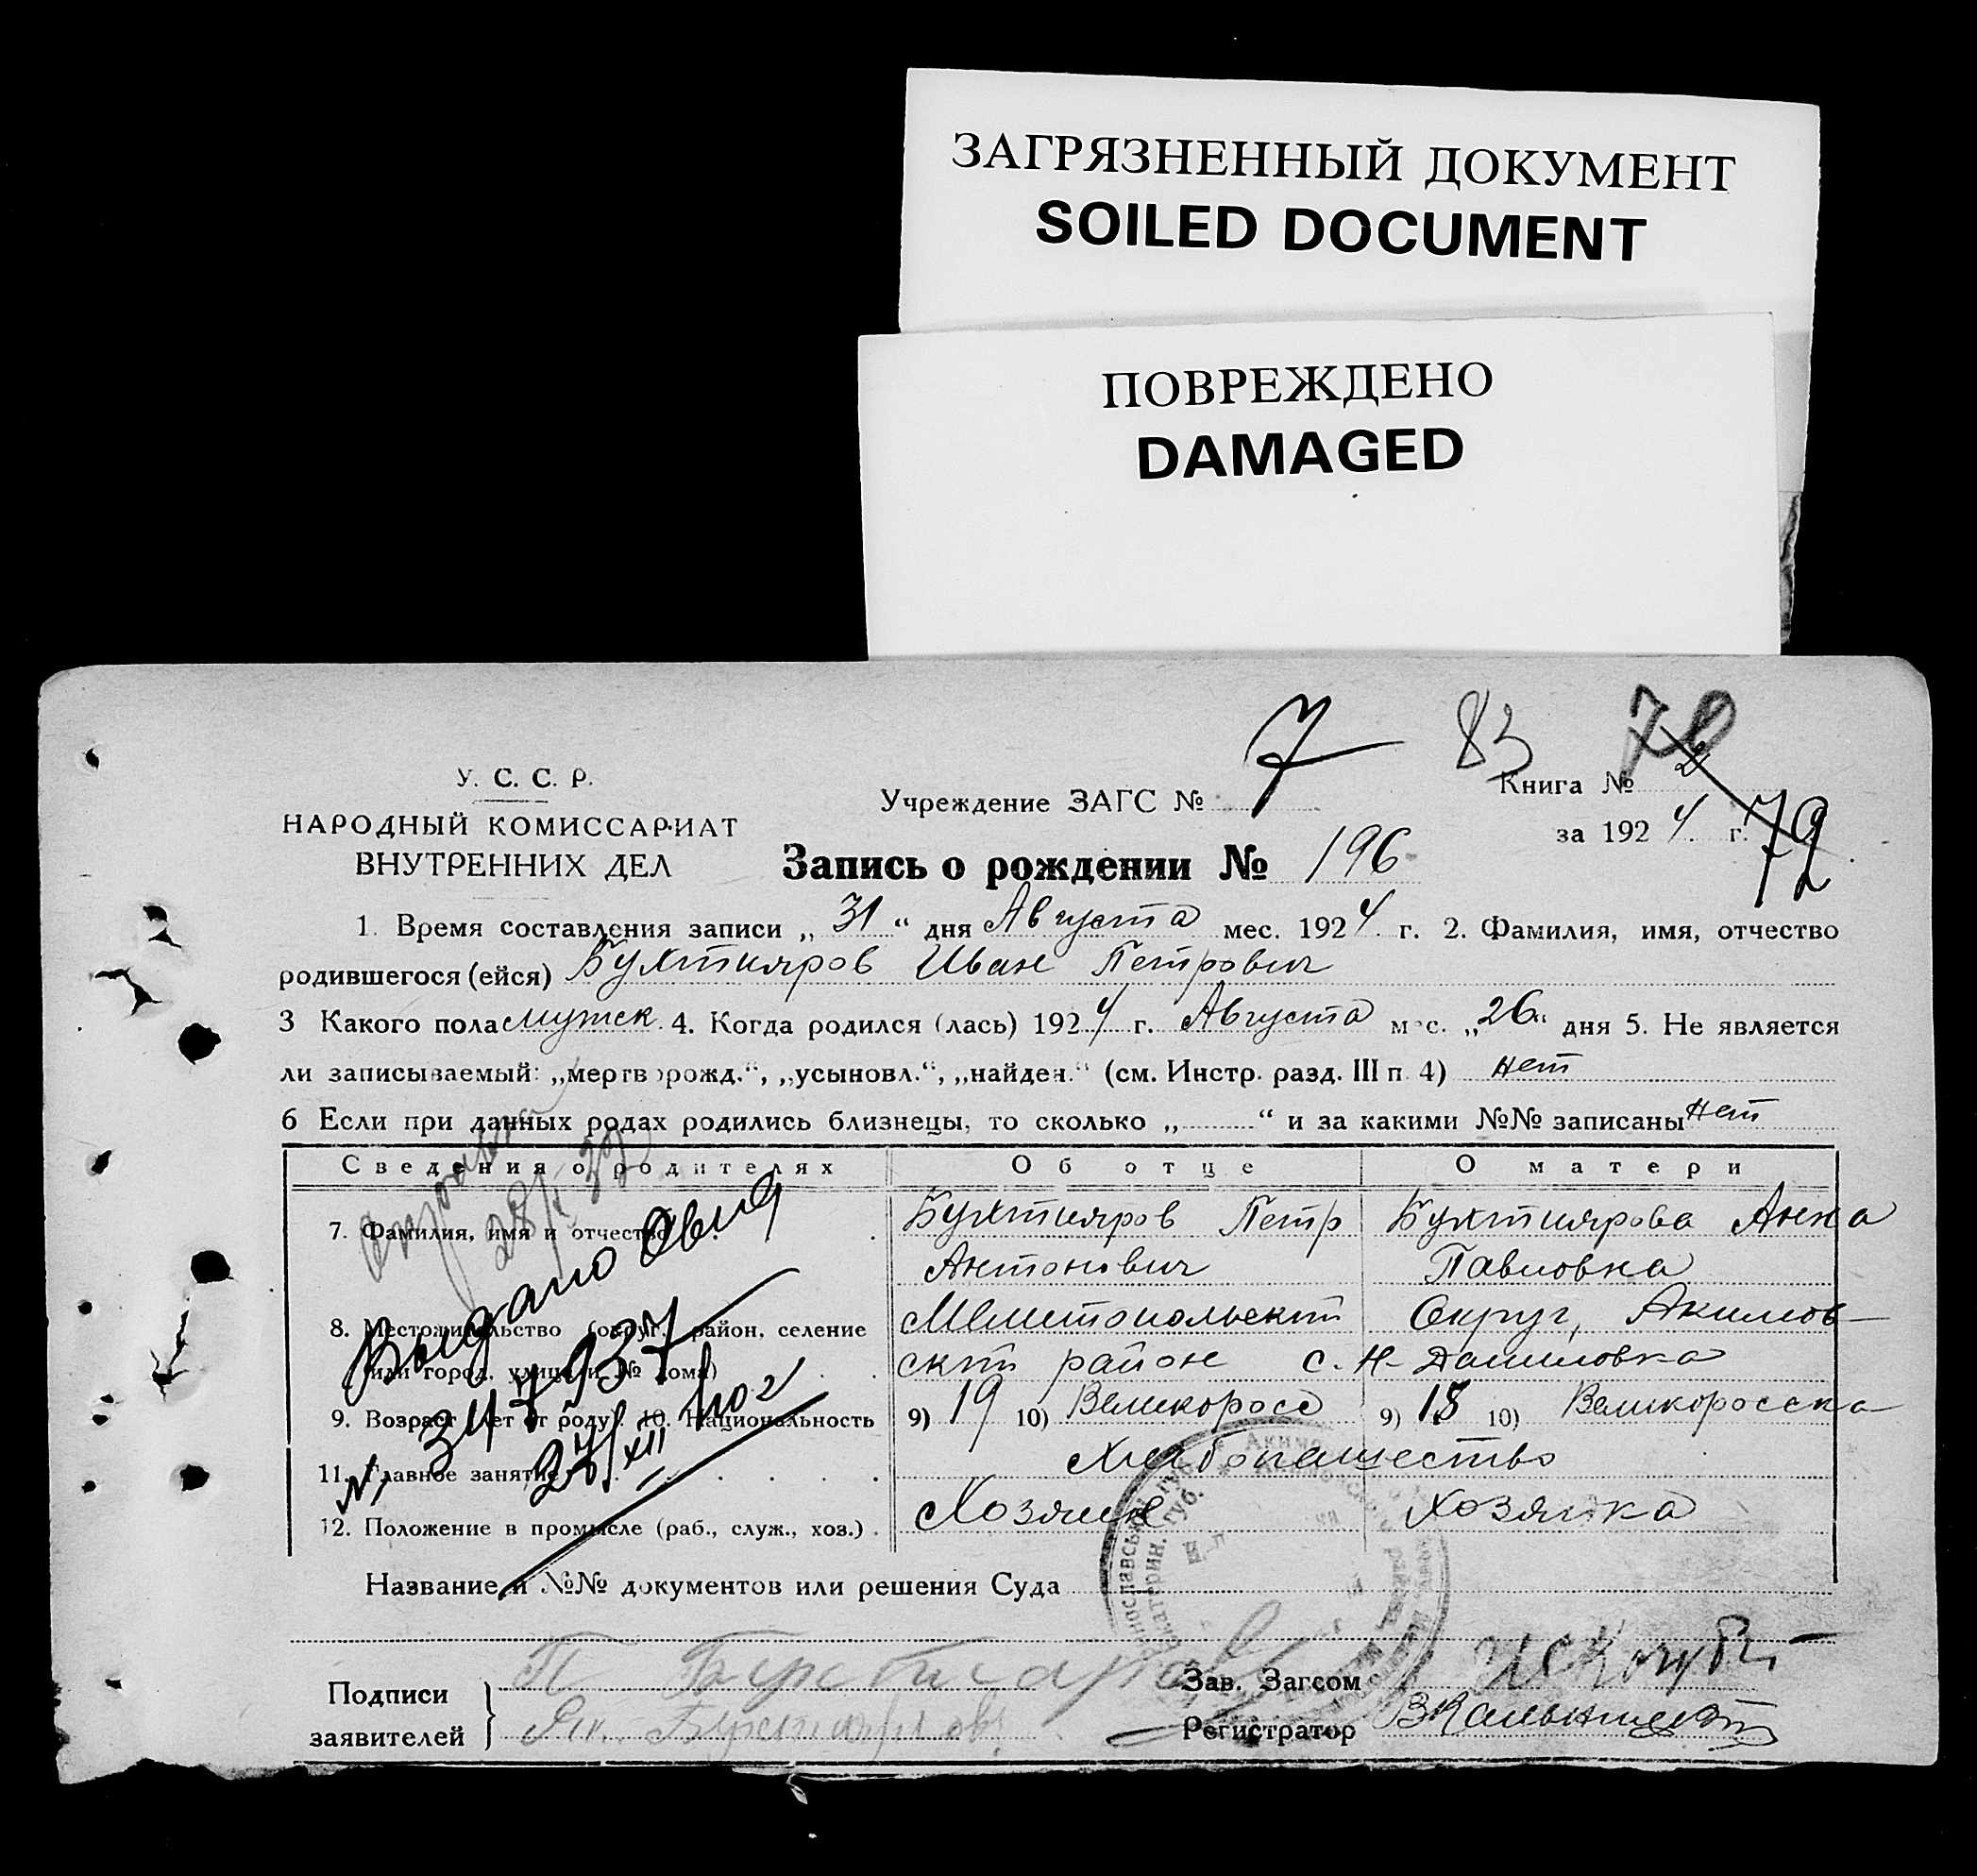 ЗАГРЯЗНЕННЫЙ ДОКУМЕНТ
SOILED DOCUMENT
ПОВРЕЖДЕНО
DAMAGED
7 83 70
У. С. С. Р.
НАРОДНЫЙ КОМИССАРИАТ
ВНУТРЕННИХ ДЕЛ
Учреждение ЗАГС №
Книга №
за 1924 г. 72
Запись о рождении № 196
1. Время составления записи „31“ дня Августа мес. 1924 г. 2. Фамилия, имя, отчество
родившегося (ейся) Бухтияров Иван Петрович
3 Какого пола мужск. 4. Когда родился (лась) 1924 г. Августа мес. „26“ дня 5. Не является
ли записываемый: „мертворожд.“, „усыновл.“, „найден.“ (см. Инстр. разд. III п. 4) нет
6 Если при данных родах родились близнецы, то сколько „ “ и за какими №№ записаны нет
Сведения о родителях Об отце О матери
7. Фамилия, имя и отчество Бухтияров Петр Бухтиярова Анна
Антонович Павловна
8. Местожительство (округ, район, селение Мелитопольский Округ, Акимов-
или город, улица и № дома) ский район с. Н-Даниловка
9. Возраст (лет от роду). 10. Национальность 9) 19 10) Великоросс 9) 18 10) Великоросска
11. Главное занятие Хлебопашество
12. Положение в промысле (раб., служ., хоз.) Хозяин Хозяйка
Выдано
347937
27/XII
Название и №№ документов или решения Суда
Подписи
заявителей
П
Бухтияров
Зав. Загсом
Регистратор